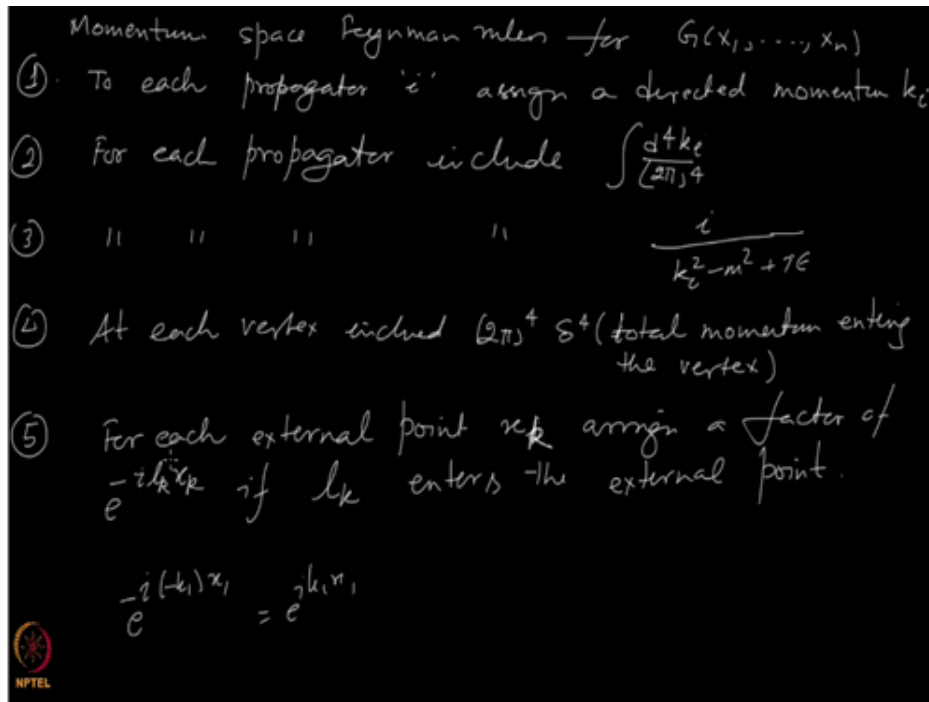 Momentum space Feynman rules for G(x₁, ...., xₙ)
① To each propagator 'i' assign a directed momentum kᵢ
② For each propagator include ∫ d⁴kᵢ/(2π)⁴
③ " " " " i/(kᵢ² - m² + iϵ)
④ At each vertex includ (2π)⁴ δ⁴(total momentum entering
the vertex)
⑤ For each external point xₖ assign a factor of
e^{-ilₖxₖ} if lₖ enters the external point.
e^{-i(-k₁)x₁} = e^{ik₁x₁}
NPTEL